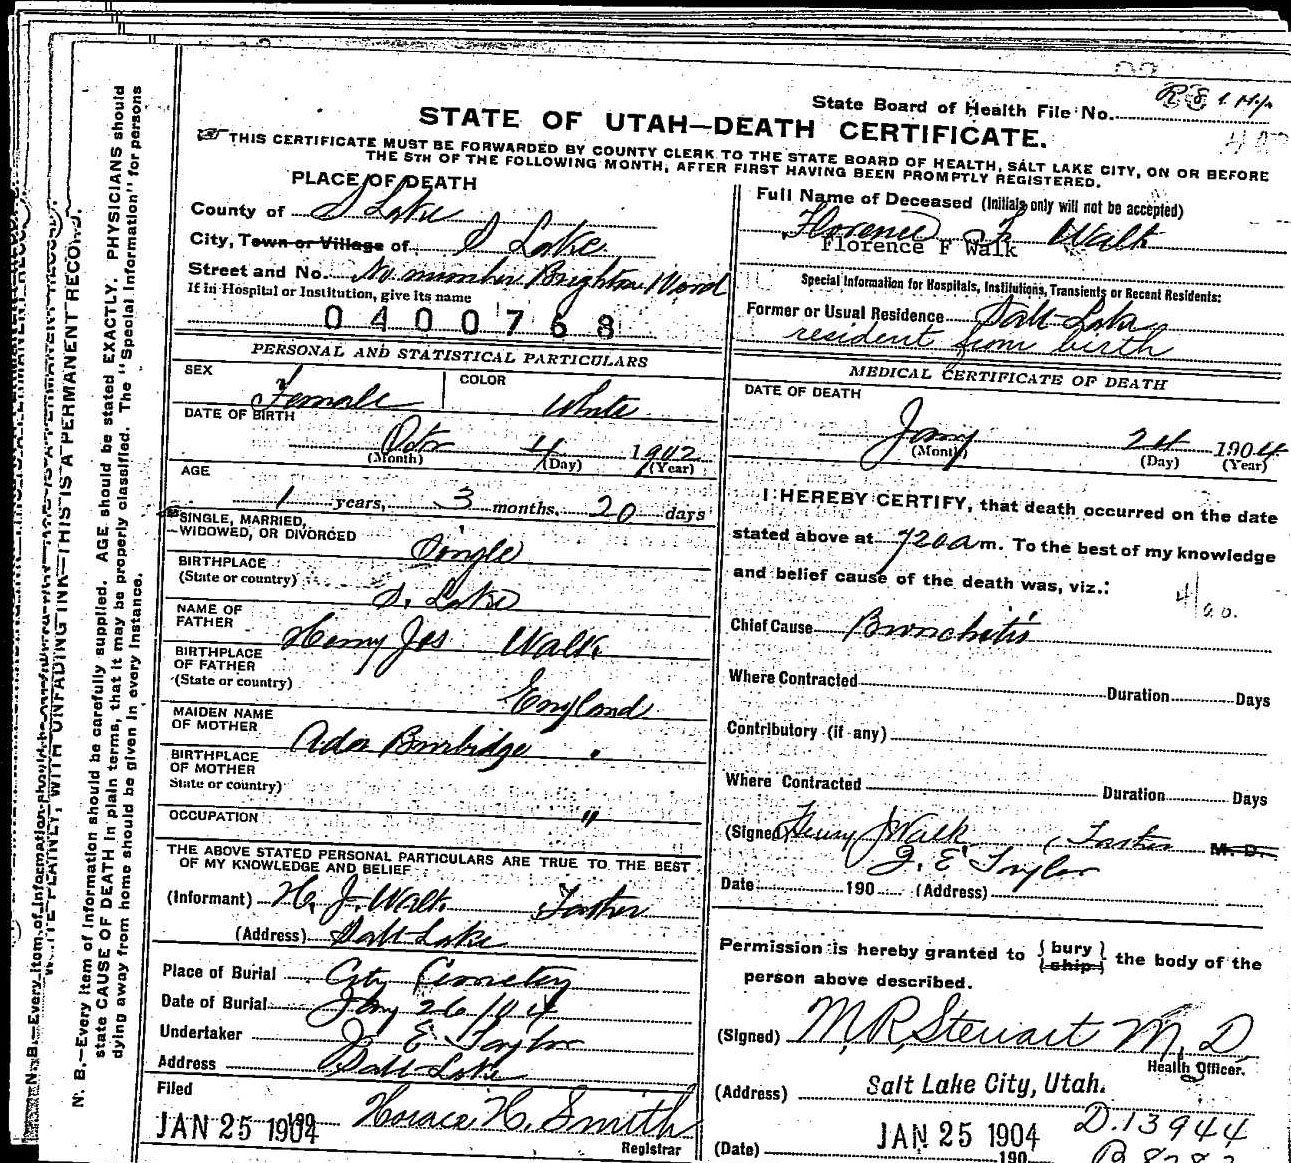 State Board of Health File No.
STATE OF UTAH—DEATH CERTIFICATE.
THIS CERTIFICATE MUST BE FORWARDED BY COUNTY CLERK TO THE STATE BOARD OF HEALTH, SALT LAKE CITY, ON OR BEFORE
THE 5TH OF THE FOLLOWING MONTH, AFTER FIRST HAVING BEEN PROMPTLY REGISTERED.
PLACE OF DEATH
County of S Lake
City, Town or Village of S Lake
Street and No. No number Brighton Ward
If in Hospital or Institution, give its name
0400768
Full Name of Deceased (Initials only will not be accepted)
Florence F. Walk
Florence F Walk
Special Information for Hospitals, Institutions, Transients or Recent Residents:
Former or Usual Residence Salt Lake
resident from birth
PERSONAL AND STATISTICAL PARTICULARS
SEX Female
COLOR White
DATE OF BIRTH
Octr 4 1902
(Month) (Day) (Year)
AGE
1 years, 3 months, 20 days
SINGLE, MARRIED,
WIDOWED, OR DIVORCED Single
BIRTHPLACE
(State or country) S. Lake
NAME OF
FATHER Henry Jos Walk
BIRTHPLACE
OF FATHER
(State or country) England
MAIDEN NAME
OF MOTHER Ada Burbidge
BIRTHPLACE
OF MOTHER
State or country) "
OCCUPATION
THE ABOVE STATED PERSONAL PARTICULARS ARE TRUE TO THE BEST
OF MY KNOWLEDGE AND BELIEF
(Informant) H. J. Walk Father
(Address) Salt Lake
Place of Burial City Cemetery
Date of Burial Jany 26/04
Undertaker J. E Taylor
Address Salt Lake
Filed
JAN 25 1904 190 Horace H. Smith
Registrar
MEDICAL CERTIFICATE OF DEATH
DATE OF DEATH
Jany 24 1904
(Month) (Day) (Year)
I HEREBY CERTIFY, that death occurred on the date
stated above at 720 a m. To the best of my knowledge
and belief cause of the death was, viz.:
Chief Cause Bronchitis
Where Contracted Duration Days
Contributory (if any)
Where Contracted Duration Days
(Signed) Henry J Walk (Father M. D.
J. E Taylor
Date 190 (Address)
Permission is hereby granted to {bury} {ship} the body of the
person above described.
(Signed) M. R. Stewart M. D.
Health Officer.
(Address) Salt Lake City, Utah.
D.13944
(Date) JAN 25 1904 190
N. B.—Every item of information should be carefully supplied. AGE should be stated EXACTLY. PHYSICIANS should
state CAUSE OF DEATH in plain terms, that it may be properly classified. The "Special Information" for persons
dying away from home should be given in every instance.
WRITE PLAINLY, WITH UNFADING INK—THIS IS A PERMANENT RECORD.
N. B.—Every item of information should be